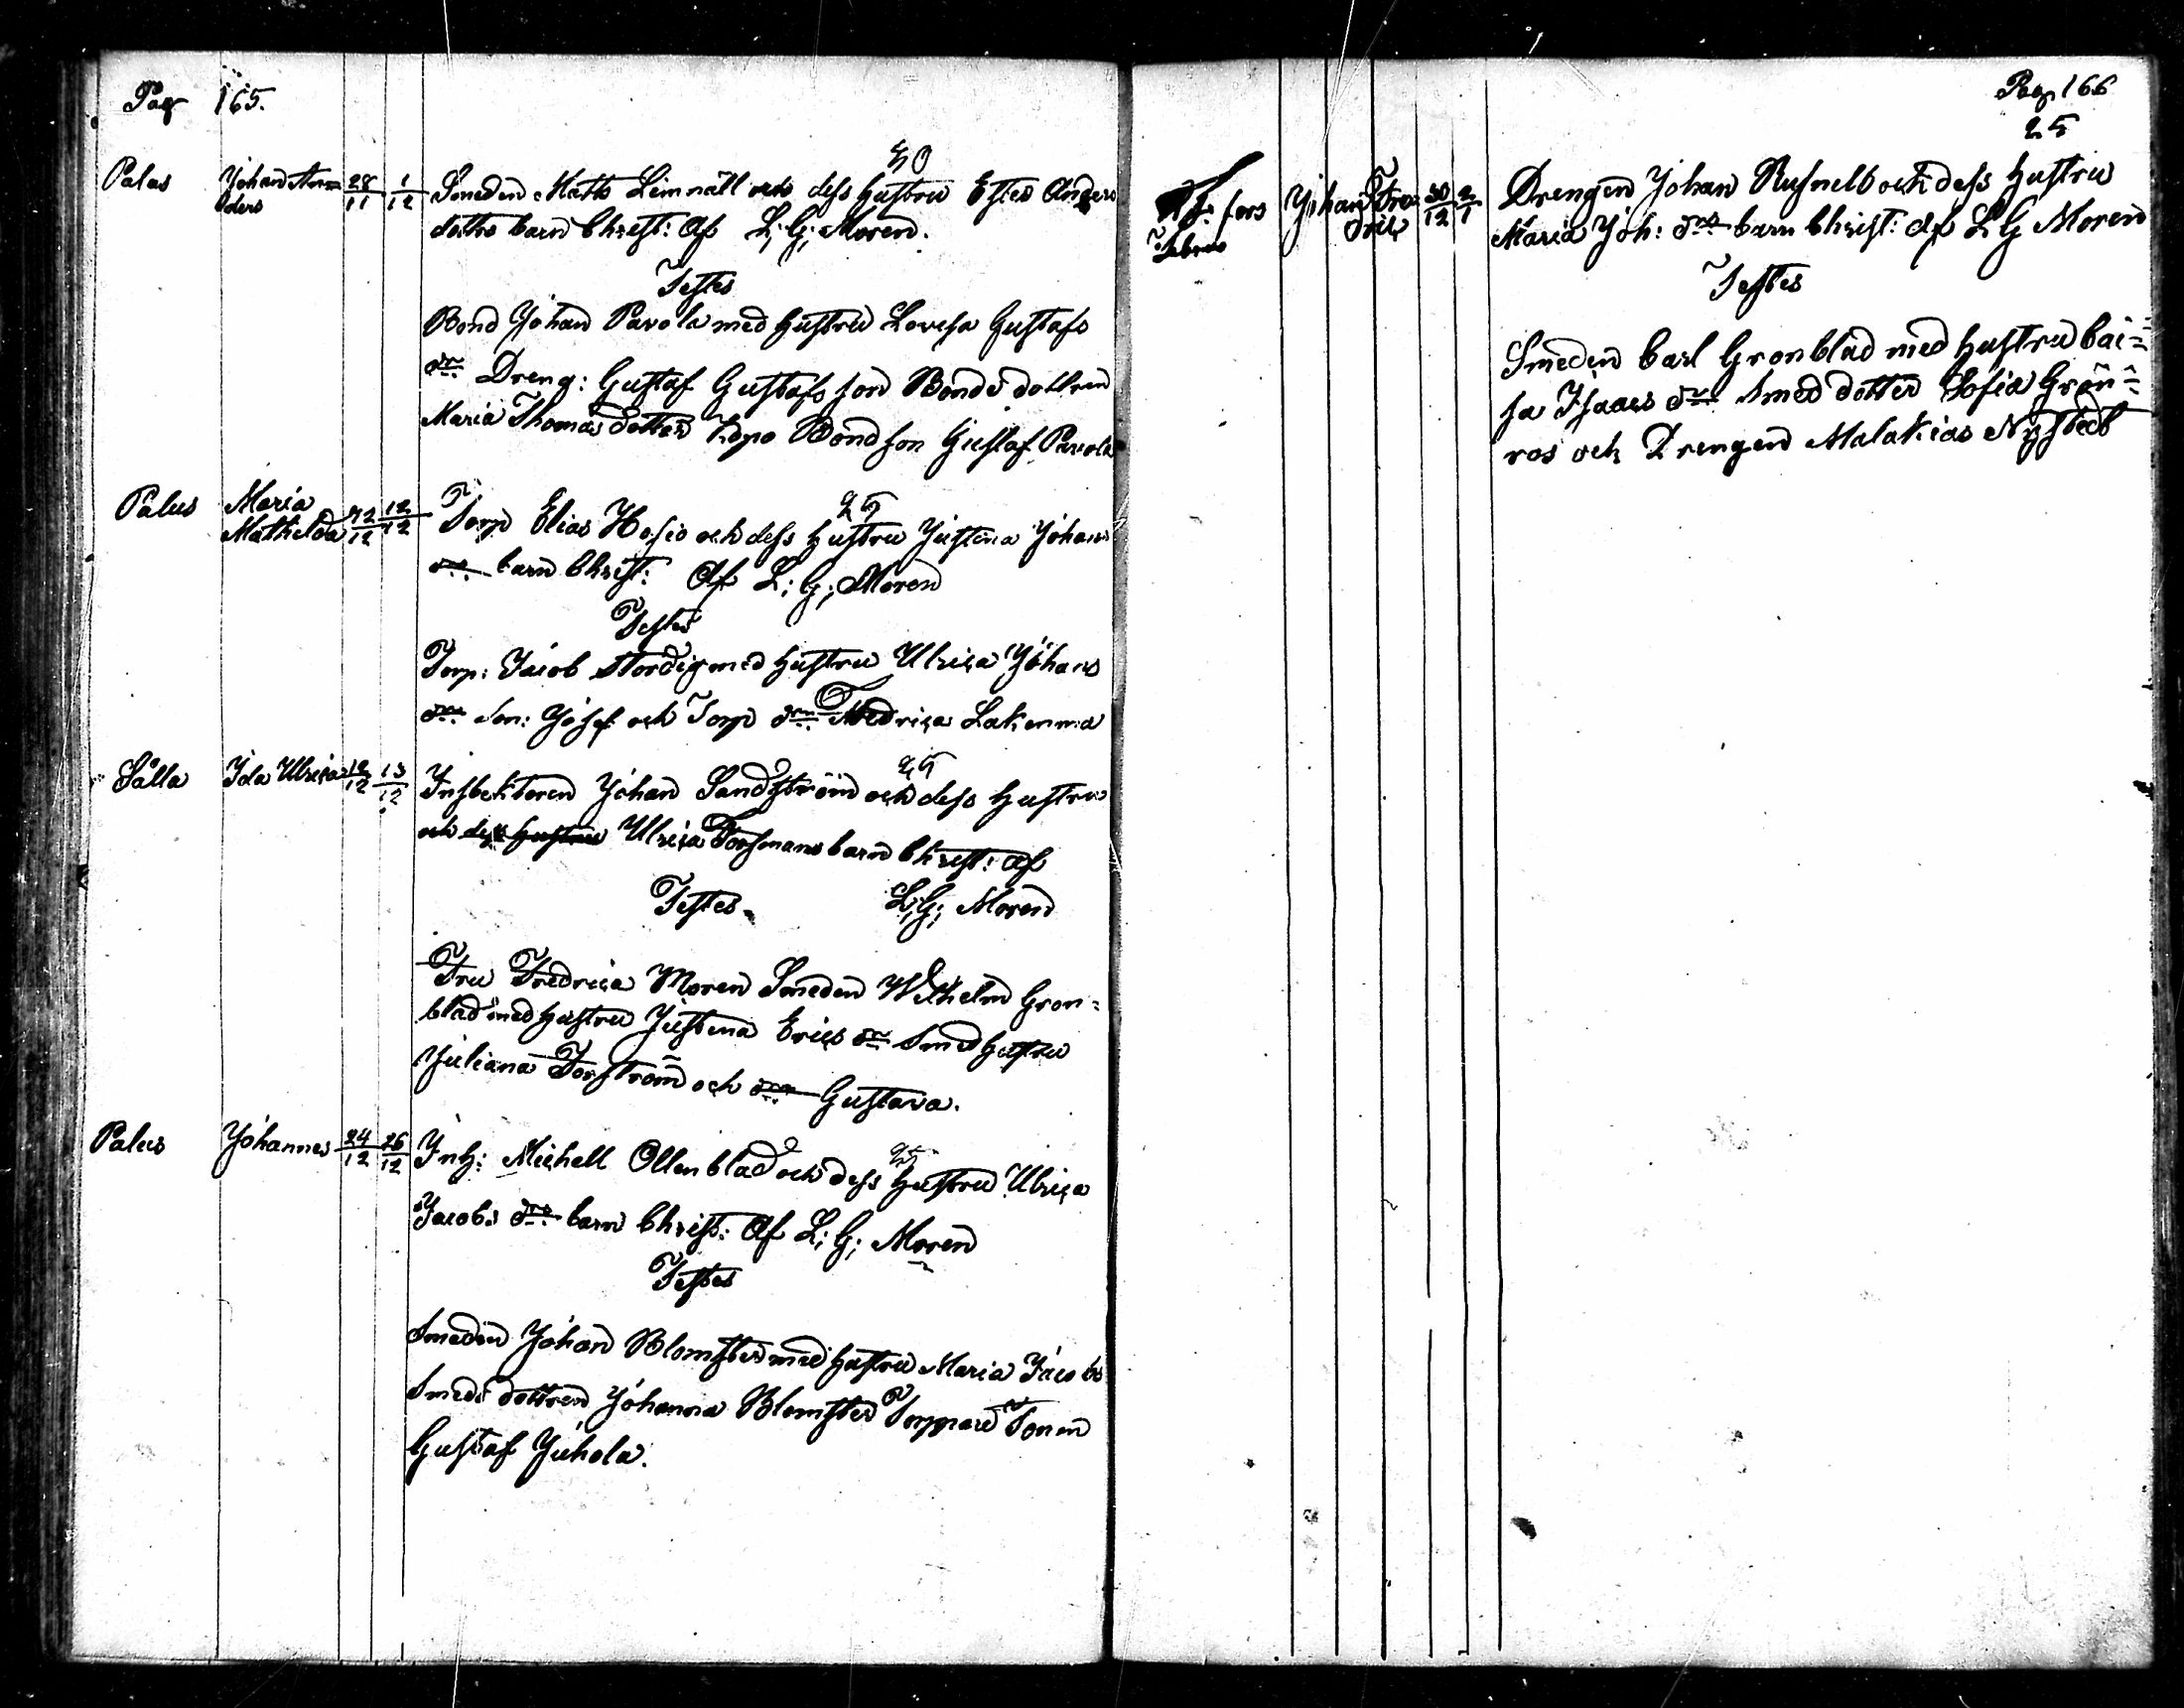 Pag 165.
30
Palus Johan An= 28/11 1/12 Smeden Matts Limnäll och dess Hustru Ester Anders
ders dotters barn Christ: Af L; G; Moren.
Testes
Bond Johan Pavola med Hustru Lovisa Gustafs
dr: Dreng: Gustaf Gustafsson Bonde dottren
Maria Thomas dotter Bondson Gustaf Pavola
25
Palus Maria 12/12 12/12 Torp Elias Hosio och dess Hustru Justina Johans
Mathilda
drs barn Christ: Af L; G; Moren
Testes
Torp: Jacob Nordig med Hustru Ulrica Johans
dr: Son: Josef och Torp dr: Fredrica Lakenma
25
Sälla Ida Ulrica 12/12 13/12 Inspektoren Johan Sandström och dess Hustru
och dess Hustru Ulrica Forsmans barn Christ: af
Testes L; G; Moren
Fru Fredrica Moren Smeden Wilhelm Gron=
blad med Hustru Justina Erics dr: Smed Hustru
Juliana Forström och dr: Gustava.
25
Palus Johannes 24/12 26/12 Inh: Michell Ollenblad och dess Hustru Ulrica
Jacobs drs barn Christ: Af L; G; Moren
Testes
Smeden Johan Blomster med Hustru Maria Jacobs
Smeds dottren Johanna Blomster Torppare Sonen
Gustaf Juhola.
Pag 166
25
fors Johan Fre= 30/12 2/1 Drengen Johan Rusnelb och dess Hustru
Fabric dric Maria Joh: drs barn Christ: af L G Moren
Testes
Smeden Carl Gronblad med Hustru Cai=
sa Isaacs dr: Smed dotter Sofia Grön=
ros och Drengen Malakias Nystedt